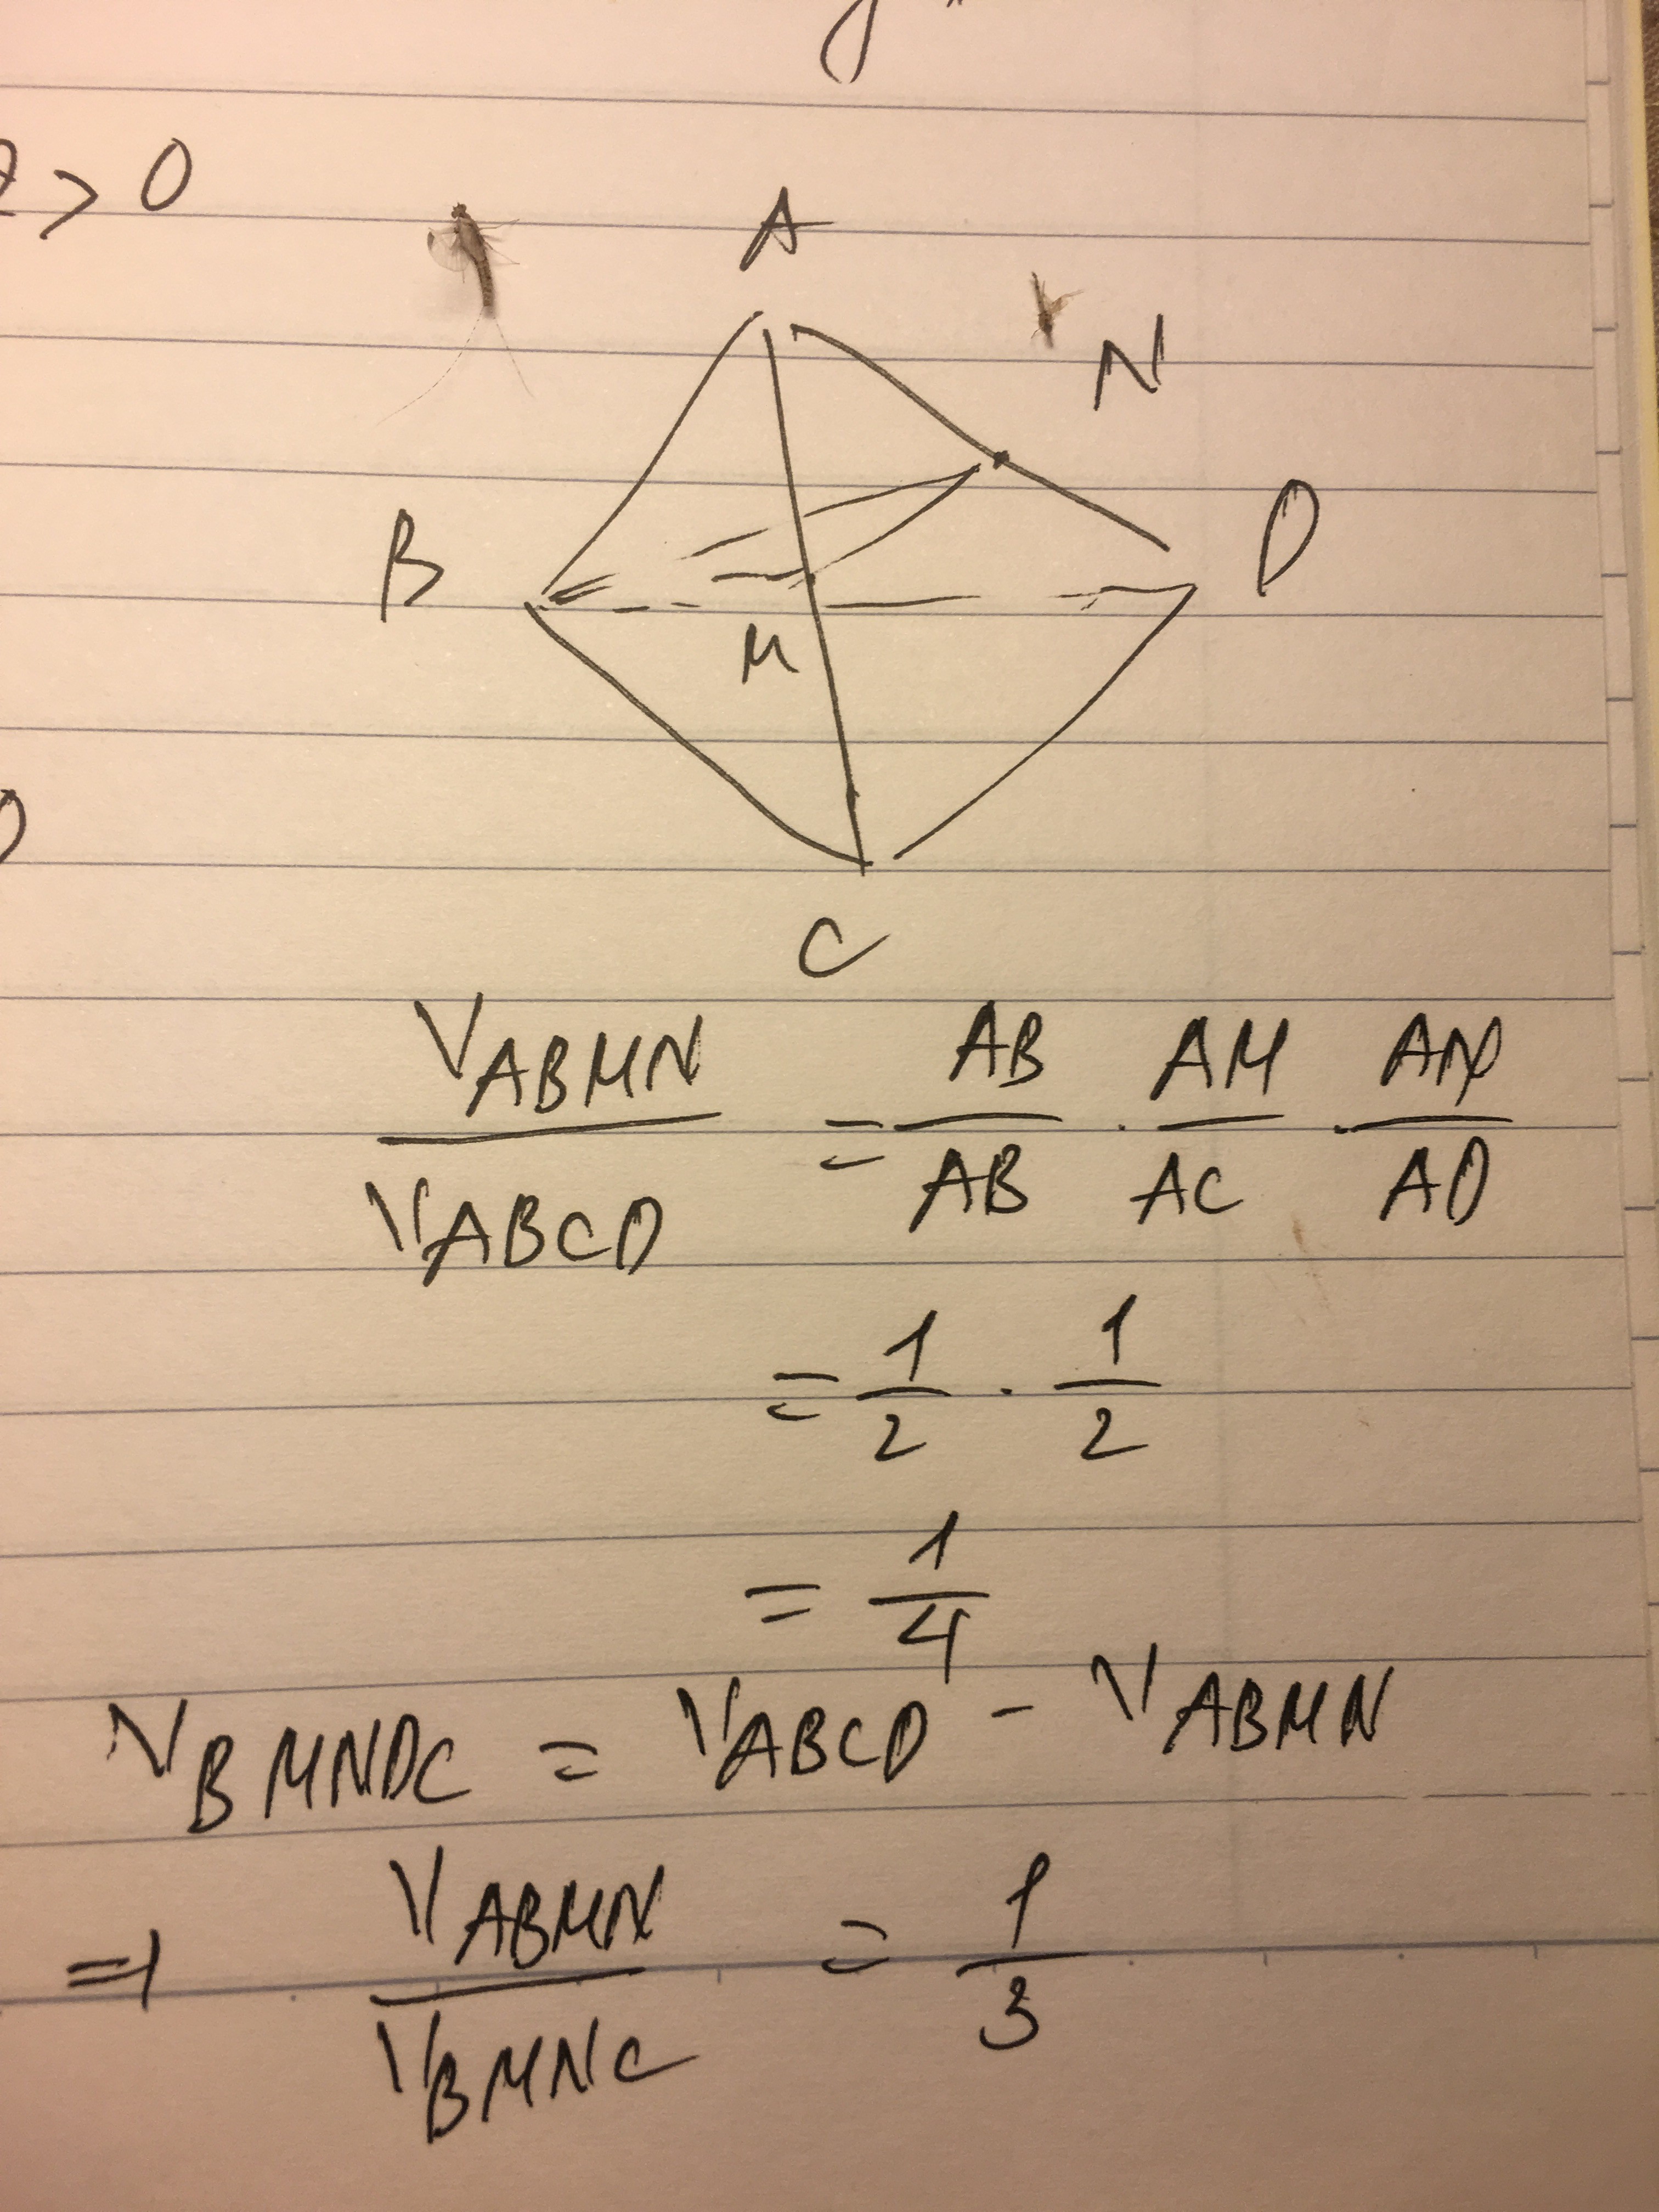 > 0
A
N
B
D
M
C
V_ABMN / V_ABCD = AB/AB . AM/AC . AN/AD
= 1/2 . 1/2
= 1/4
V_BMNDC = V_ABCD - V_ABMN
=> V_ABMN / V_BMNC = 1/3